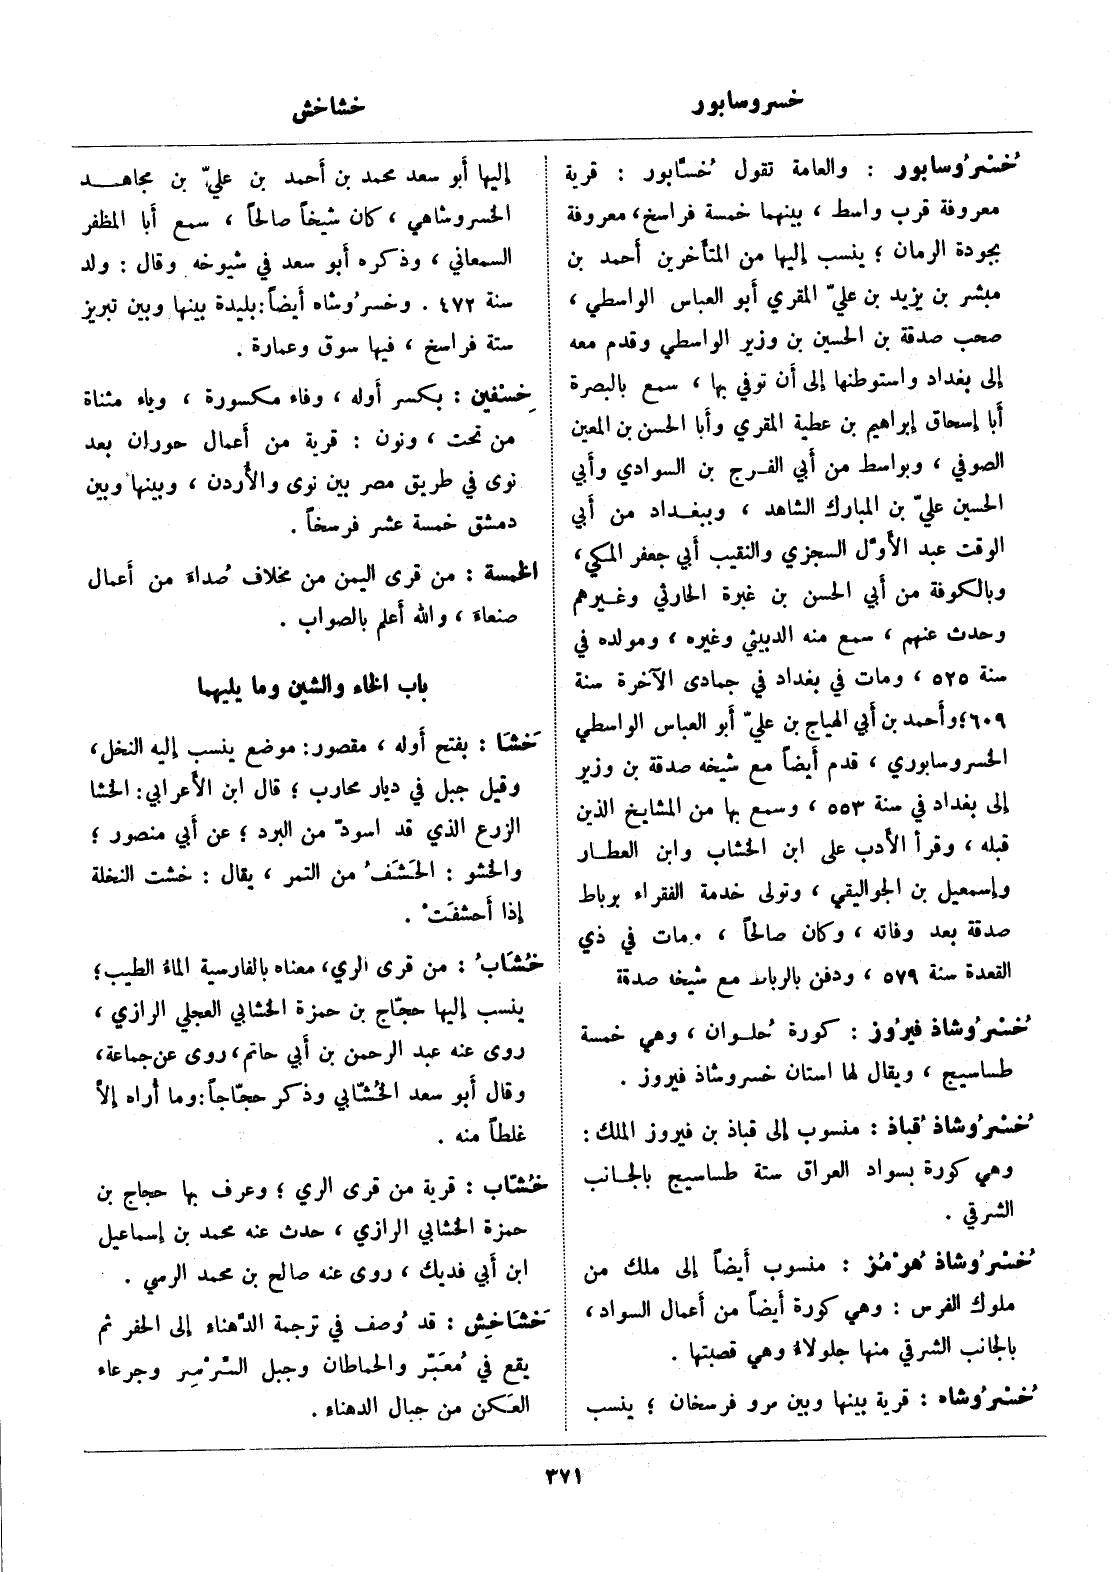 خسروسابور
خشاخش
خُسْرُوسابور : والعامة تقول خُسّابور : قرية
معروفة قرب واسط ، بينهما خمسة فراسخ، معروفة
بجودة الرمان ؛ ينسب إليها من المتأخرين أحمد بن
مبشر بن يزيد بن عليّ المقري أبو العباس الواسطي ،
صحب صدقة بن الحسين بن وزير الواسطي وقدم معه
إلى بغداد واستوطنها إلى أن توفي بها ، سمع بالبصرة
أبا إسحاق إبراهيم بن عطية المقري وأبا الحسن بن المعين
الصوفي ، وبواسط من أبي الفرج بن السوادي وأبي
الحسين عليّ بن المبارك الشاهد ، وببغداد من أبي
الوقت عبد الأوّل السجزي والنقيب أبي جعفر المكي،
وبالكوفة من أبي الحسن بن غبرة الحارثي وغيرهم
وحدث عنهم ، سمع منه الدبيثي وغيره ، ومولده في
سنة ٥٢٥ ، ومات في بغداد في جمادى الآخرة سنة
٦٠٩؛ وأحمد بن أبي الهياج بن عليّ أبو العباس الواسطي
الخسروسابوري ، قدم أيضاً مع شيخه صدقة بن وزير
إلى بغداد في سنة ٥٥٣ ، وسمع بها من المشايخ الذين
قبله ، وقرأ الأدب على ابن الخشاب وابن العطار
وإسمعيل بن الجواليقي ، وتولى خدمة الفقراء برباط
صدقة بعد وفاته ، وكان صالحاً ، ومات في ذي
القعدة سنة ٥٧٩ ، ودفن بالرباط مع شيخه صدقة
خُسْرُوشاذ فيرُوز : كورة حُلوان ، وهي خمسة
طساسيج ، ويقال لها استان خسروشاذ فيروز .
خُسْرُوشاذ قُباذ : منسوب إلى قباذ بن فيروز الملك :
وهي كورة بسواد العراق ستة طساسيج بالجانب
الشرقي .
خُسْرُوشاذ هُرْمُز : منسوب أيضاً إلى ملك من
ملوك الفرس : وهي كورة أيضاً من أعمال السواد،
بالجانب الشرقي منها جلولاءُ وهي قصبتها .
خُسْرُوشاه : قرية بينها وبين مرو فرسخان ؛ ينسب
إليها أبو سعد محمد بن أحمد بن عليّ بن مجاهد
الخسروشاهي ، كان شيخاً صالحاً ، سمع أبا المظفر
السمعاني ، وذكره أبو سعد في شيوخه وقال : ولد
سنة ٤٧٢ . وخسرُوشاه أيضاً: بليدة بينها وبين تبريز
ستة فراسخ ، فيها سوق وعمارة .
خِسْفين : بكسر أوله ، وفاء مكسورة ، وياء مثناة
من تحت ، ونون : قرية من أعمال حوران بعد
نوى في طريق مصر بين نوى والأردن ، وبينها وبين
دمشق خمسة عشر فرسخاً .
الخمسة : من قرى اليمن من مخلاف صُداءَ من أعمال
صنعاءَ ، والله أعلم بالصواب .
باب الخاء والشين وما يليهما
خَشَا : بفتح أوله ، مقصور: موضع ينسب إليه النخل،
وقيل جبل في ديار محارب ؛ قال ابن الأعرابي: الخشا
الزرع الذي قد اسودّ من البرد ؛ عن أبي منصور ؛
والخشو : الحَشَفُ من التمر ، يقال : خشت النخلة
إذا أحشفَتْ .
خُشَابُ : من قرى الري، معناه بالفارسية الماءُ الطيب؛
ينسب إليها حجّاج بن حمزة الخشابي العجلي الرازي ،
روى عنه عبد الرحمن بن أبي حاتم، روى عن جماعة،
وقال أبو سعد الخُشّابي وذكر حجّاجاً: وما أراه إلاّ
غلطاً منه .
خُشّاب : قرية من قرى الري ؛ وعرف بها حجاج بن
حمزة الخشابي الرازي ، حدث عنه محمد بن إسماعيل
ابن أبي فديك ، روى عنه صالح بن محمد الرمي .
خَشَاخِش : قد وُصف في ترجمة الدّهناء إلى الحفر ثم
يقع في مُعَبّر والحماطان وجبل السّرْسر وجرعاء
العَكن من جبال الدهناء .
٣٧١